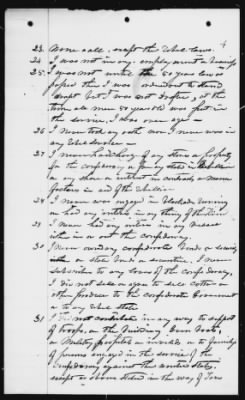 4
23. None at all, except the tithe laws.
24 I was not in any employment or
25. I was not until the 50 years law was
passed then I was ordered to
except but I was not . at the
time all men 50 years old was put in
the service, I was over age —
26 I never took any oath nor I never was in
any
27 I never had charge of any stores or property
for the confederacy
or any share or interest in contracts or
factories in aid of the rebellion
28 I never was engaged in blockade running
or had any interest in any thing of the kind
29 I never had any interest in any
in or out the confederacy.
30 I never owned any confederate bonds or
or State bonds or securities. I never
subscribed to any loans of the confederacy.
I did not sell or agree to sell cotton or
other produce to the confederate Government
or any State
31 I did not contribute in any way to support
of troops, or the Building Gun boats,
or Military hospitals or invalids or to family
of persons engaged in the service of the
confederacy against the United States,
except as above stated in the way of